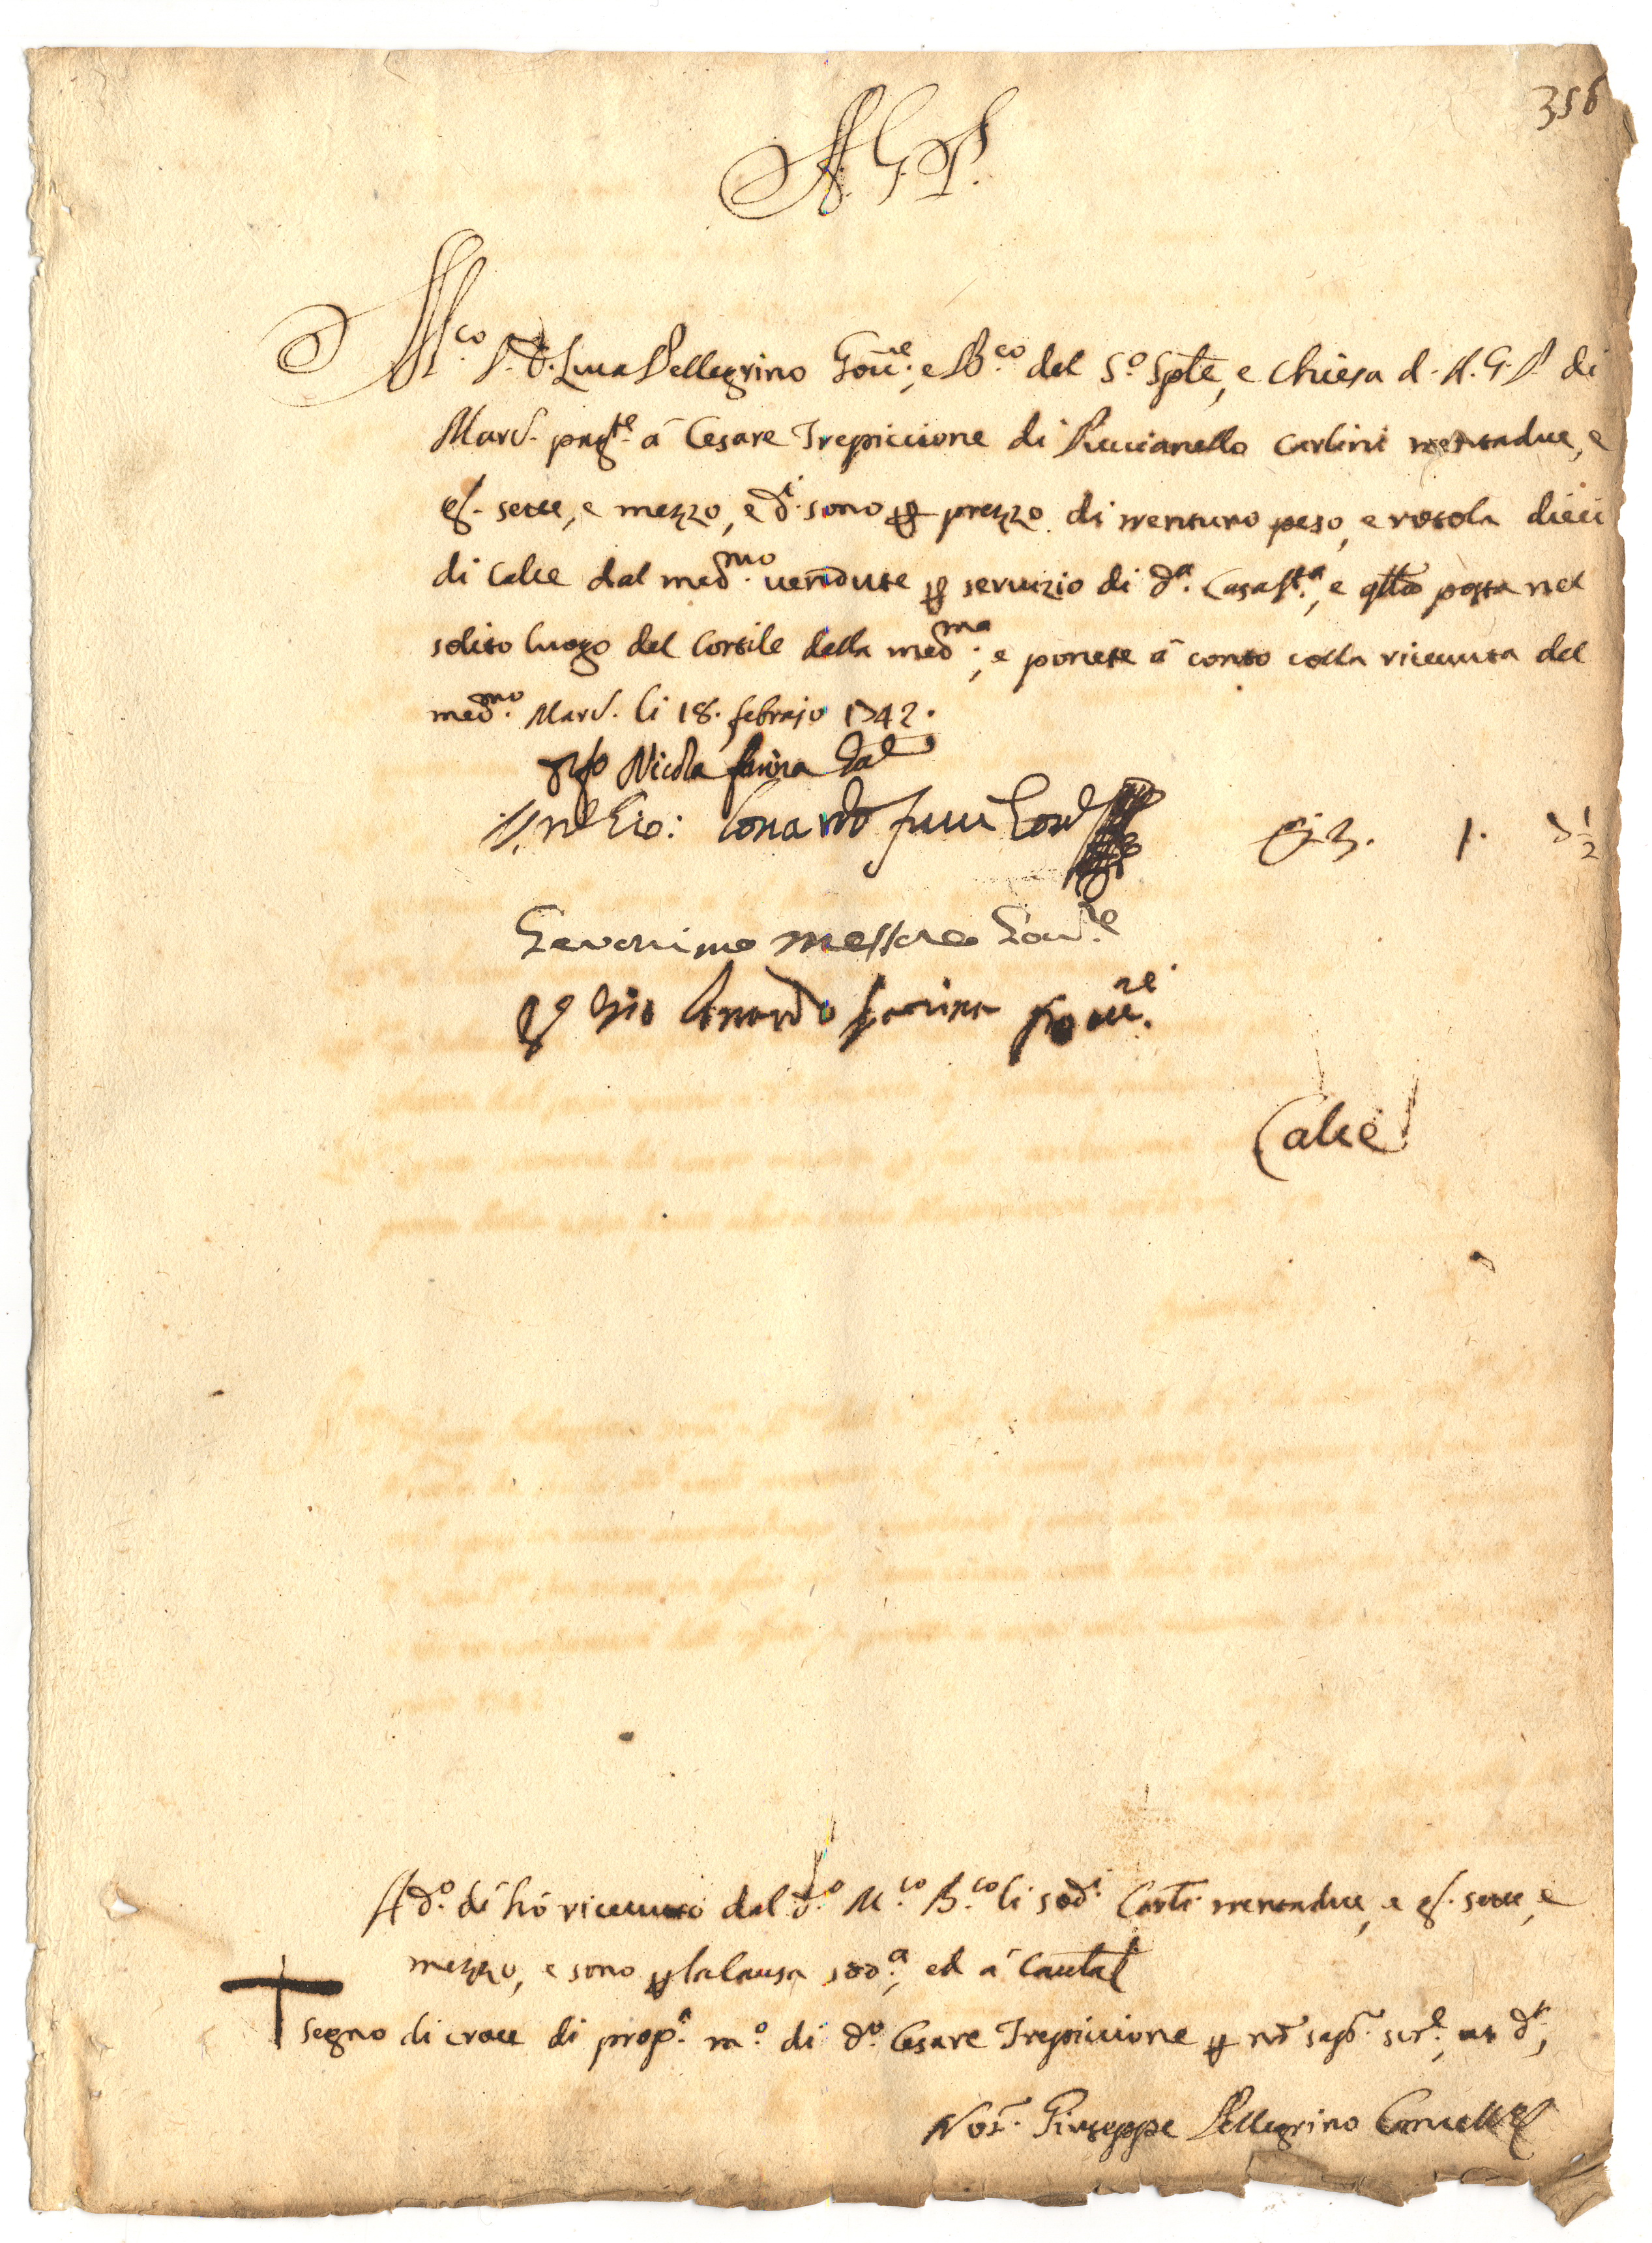 356
A. G. P.
M.co S.r D. Luca Pellegrino Gou.re, e B.co del S.o Spte, e Chiesa d. A. G. P. di
Marc. pag.te à Cesare Trepiccione di Puccianello Carlini trentadue, e
g. sette, e mezzo, e d.i sono per prezzo di trentuno peso, e rotola dieci
di Calce dal med.mo vendute per servizio di d.a Casa S.ta, e qlla posta nel
solito luogo del Cortile della med.ma, e ponete à conto colla ricevuta del
med.mo Marc. li 18. febrajo 1742.
Nicola farina
Gio: Lonardo Gou.
3. 1. 7 1/2
Geronimo Messore Gou.re
Gio Lonardo farina Gou.re
Calce
A d.o dì hò ricevuto dal d.o M.co B.co li sod.i Carli trentadue, e g. sette, e
mezzo, e sono per la causa sod.a, ed à Cautal
Segno di croce di prop.a m.o di d.o Cesare Trepiccione per no sap.r scr.e, ut d.r,
Not.r Giuseppe Pellegrino